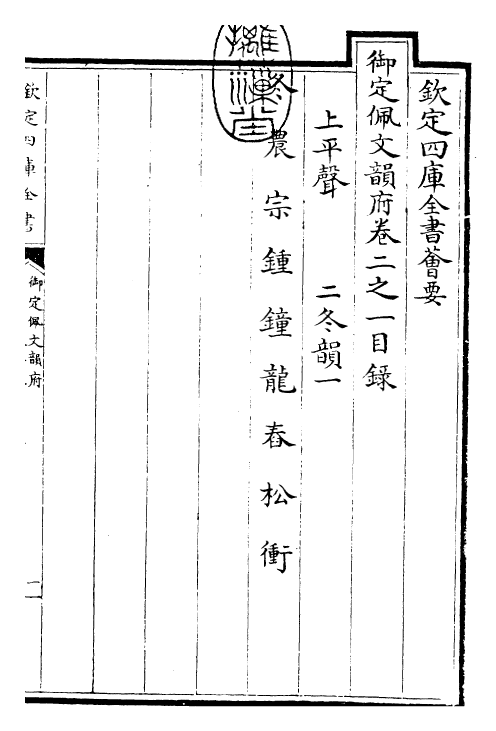 欽定四庫全書薈要
御定佩文韻府卷二之一目錄
上平聲　二冬韻一
冬農宗鍾鐘龍舂松衝
欽定四庫全書
御定佩文韻府
一